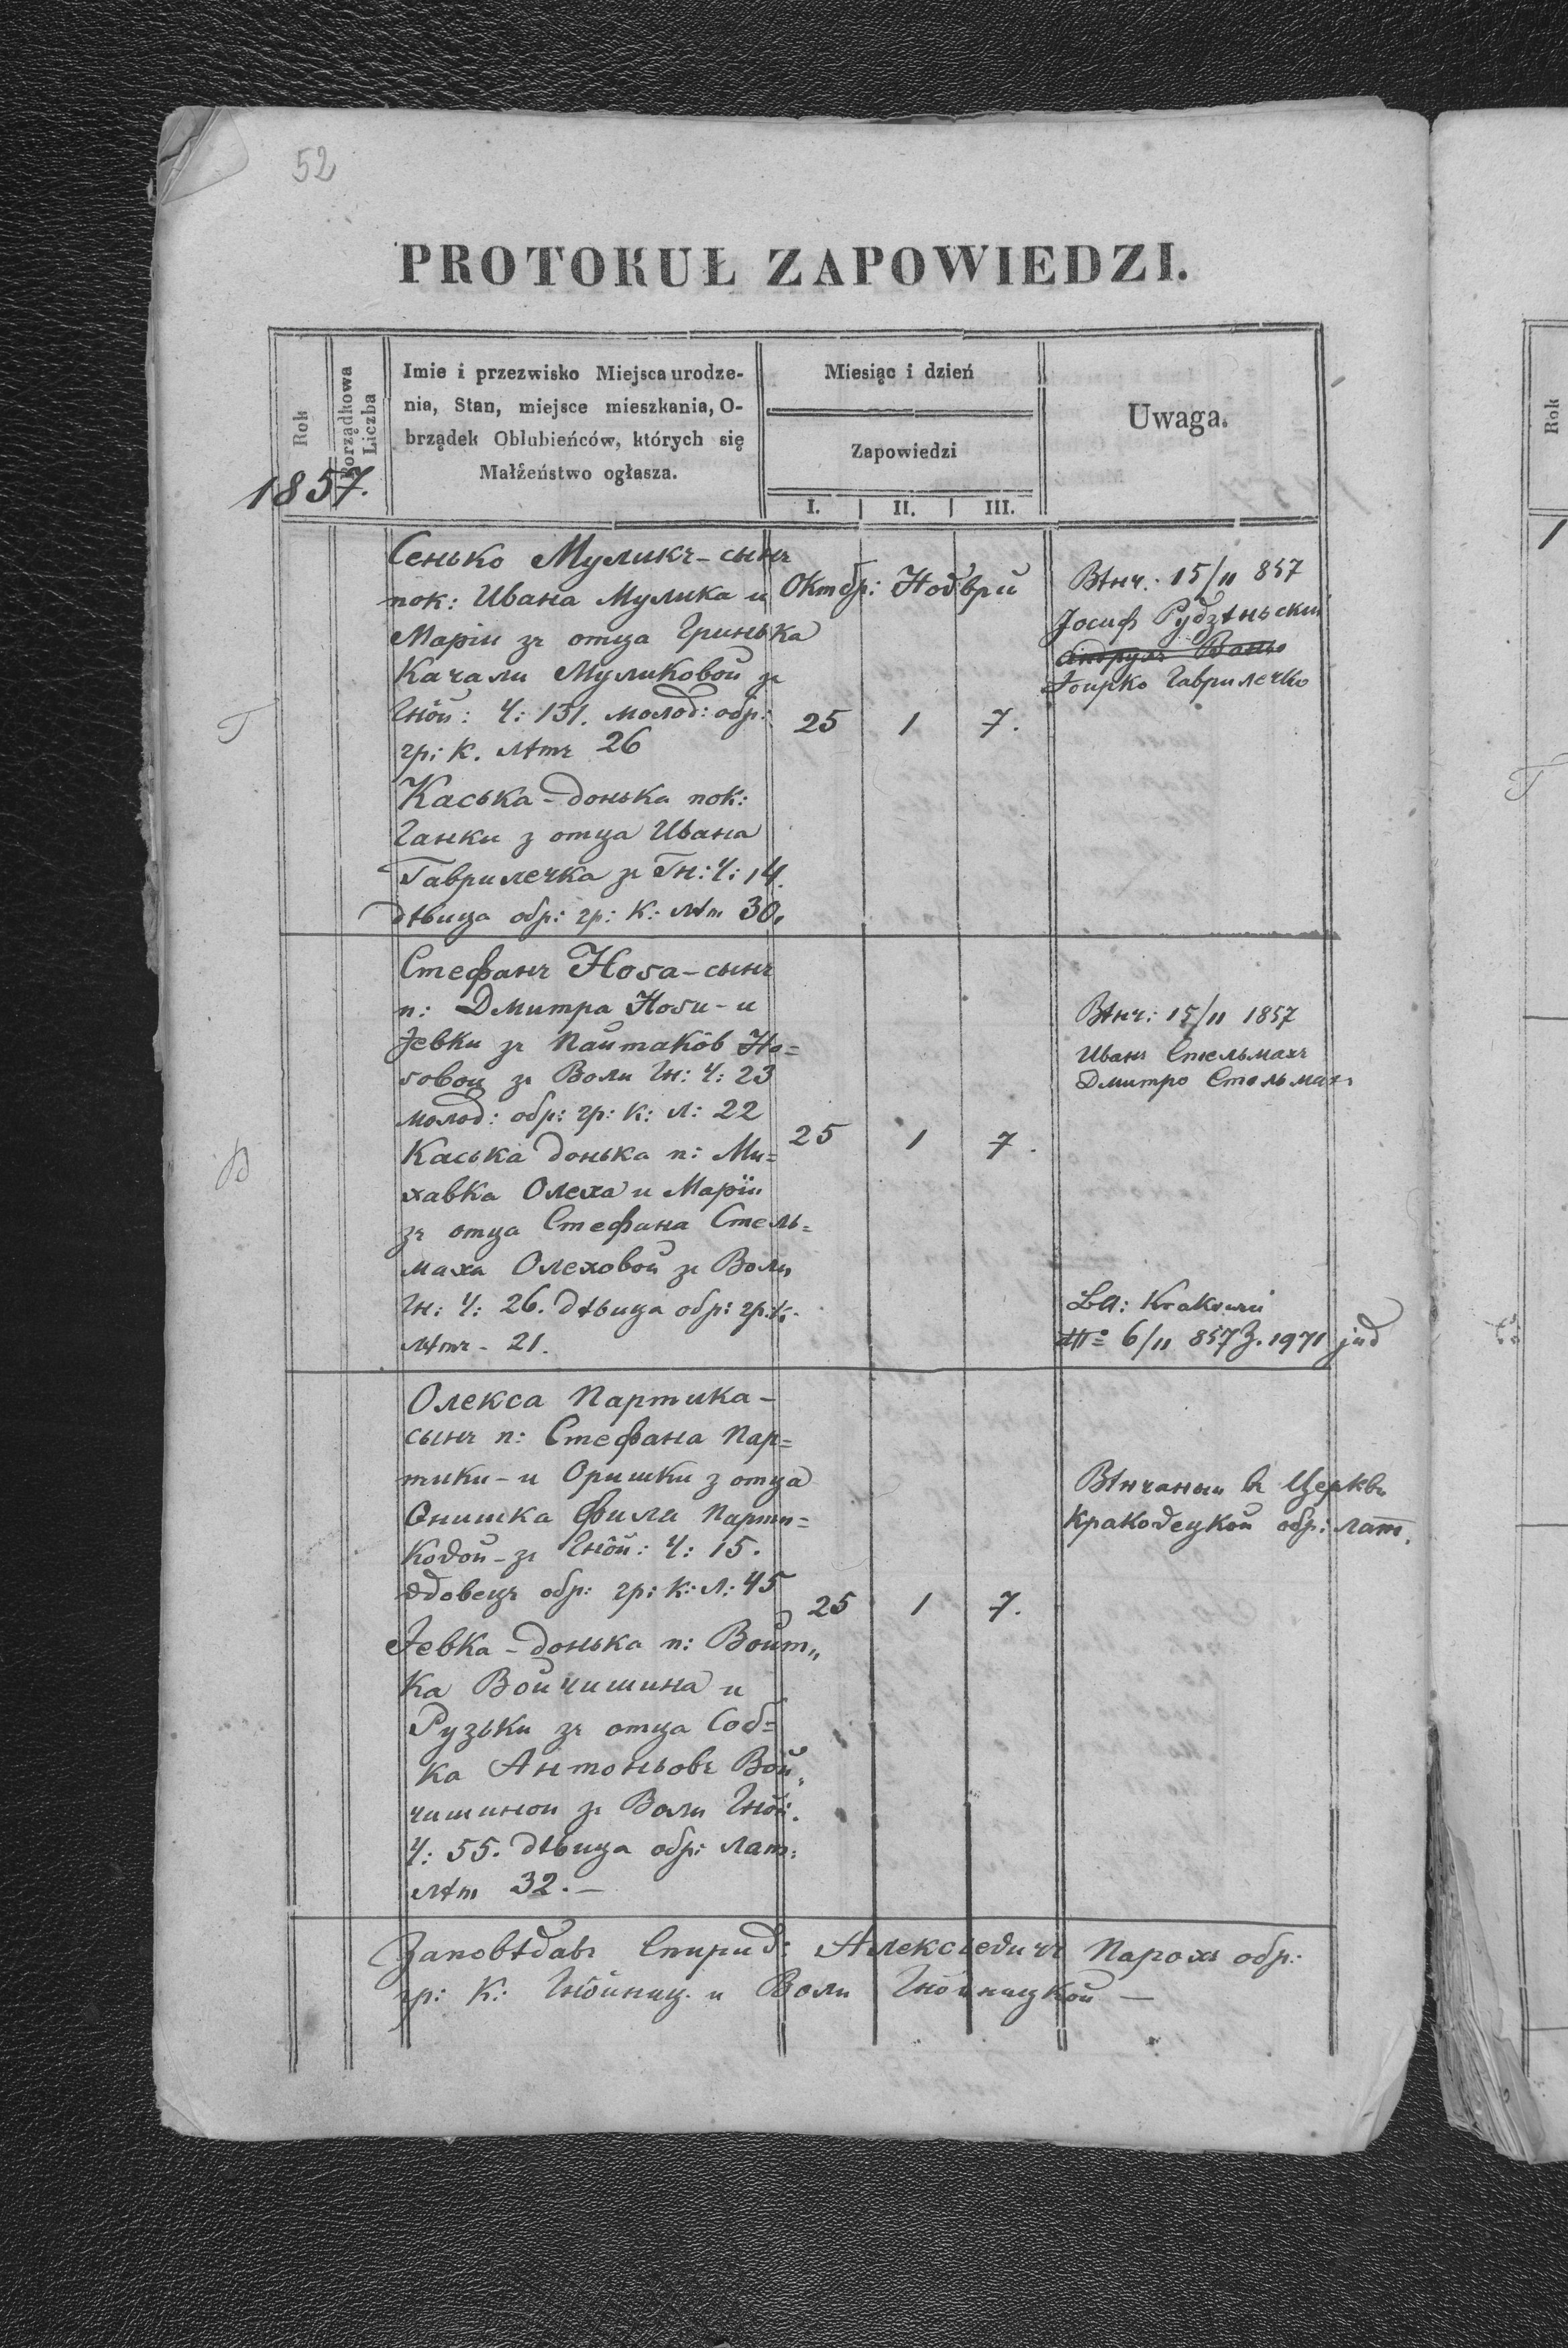 52
PROTOKUŁ ZAPOWIEDZI.
Rok
Porządkowa
Liczba
Imie i przezwisko Miejsca urodze-
nia, Stan, miejsce mieszkania, O-
brządek Oblubieńców, których się
Małżeństwo ogłasza.
Miesiąc i dzień
Zapowiedzi
I. II. III.
Uwaga.
1857.
Сенько Муликъ - сынъ
пок: Ивана Мулика и
Маріи зъ отца Гринька
Качали Муликовой зъ
Гнôй: Ч: 131. молод: обр:
гр: к. лѣтъ 26
Каська - донька пок:
Ганки з отца Ивана
Гаврилечка зъ Гн: Ч: 14.
дѣвица обр: гр: к: лѣт 30.
Октбр: Ноѣврій
25 1 7.
Вѣнч: 15/11 857
Іосиф Рудзѣньскій
Гаврилечко
Г
Стефанъ Носа - сынъ
п: Дмитра Носы - и
Іевки зъ Пайтакôв Но=
совои зъ Воли Гн: Ч: 23
молод: обр: гр: к: л: 22
Каська донька п: Ми=
хавка Олеха и Маріи
зъ отца Стефана Стель=
маха Олеховой зъ Воли
Гн: Ч: 26. дѣвица обр: гр: к.
лѣтъ - 21.
25 1 7.
Вѣнч: 15/11 1857
Иванъ Стельмахъ
Дмитро Стельмахъ
6/11 857 З. 1971 jud
В
Олекса Партика -
сынъ п: Стефана Пар=
тики - и Оришки з отца
Онишка Фила Парти=
ковой - зъ Гнôй: Ч: 15.
вдовецъ обр: гр: к: л: 45
Іевка - донька п: Войт„
ка Войчишина и
Рузьки зъ отца Соб=
ка Антоньовъ Вой„
чишинои зъ Воли Гнôй.
Ч: 55. дѣвица обр: лат:
лѣт 32. —
25 1 7.
Вѣнчаныи въ Церкви
Краковецкой обр: лат.
Заповѣдавъ Спирид: Алексѣевичъ Парохъ обр:
гр: К: Гнôйниц. и Воли Гнôйницкой —
Rok